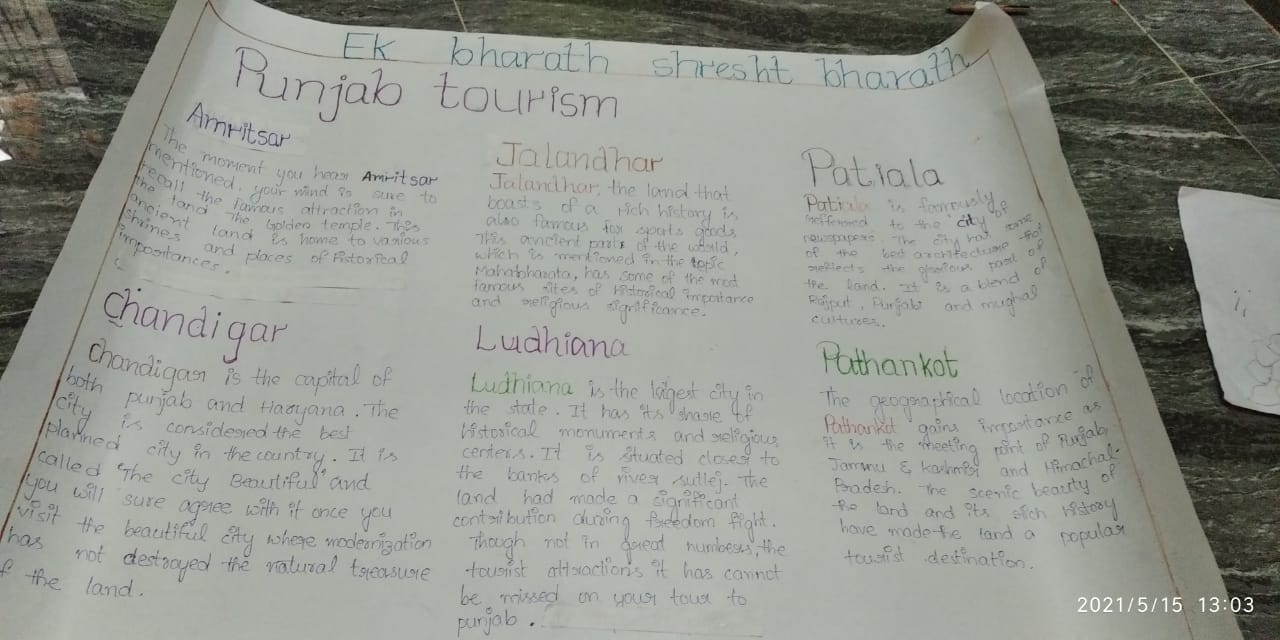 Ek bharath shresht bharath
Punjab tourism
Amritsar
The moment you hear Amritsar
mentioned, your mind is sure to
recall the famous attraction in
the land the Golden temple. This
ancient land is home to various
shrines and places of historical
importances.
Jalandhar
Jalandhar, the land that
boasts of a rich history is
also famous for sports goods.
This ancient parts of the world,
which is mentioned in the topic
Mahabharata, has some of the most
famous sites of Historical importance
and religious significance.
Patiala
Patiala is famously
refferred to the city of
newspapers. The city has some
of the best architecture that
reflects the glorious past of
the land. It is a blend of
Rajput, Punjabi and mughal
cultures.
Chandigar
Chandigar is the capital of
both punjab and Haryana. The
city is considered the best
planned city in the country. It is
called "The city Beautiful" and
you will sure agree with it once you
visit the beautiful city where modernization
has not destroyed the natural treasure
f the land.
Ludhiana
Ludhiana is the latgest city in
the state. It has its share of
historical monuments and religious
centers. It is situated closer to
the banks of river sutlej. The
land had made a significant
contribution during freedom fight.
Though not in great numbers, the
tourist attractions it has cannot
be missed on your tour to
punjab.
Pathankot
The geographical location of
Pathankot gains importance as
it is the meeting point of Punjab,
Jammu & Kashmir and Himachal-
Pradesh. The scenic beauty of
the land and its rich history
have made the land a popular
tourist destination.
2021/5/15 13:03